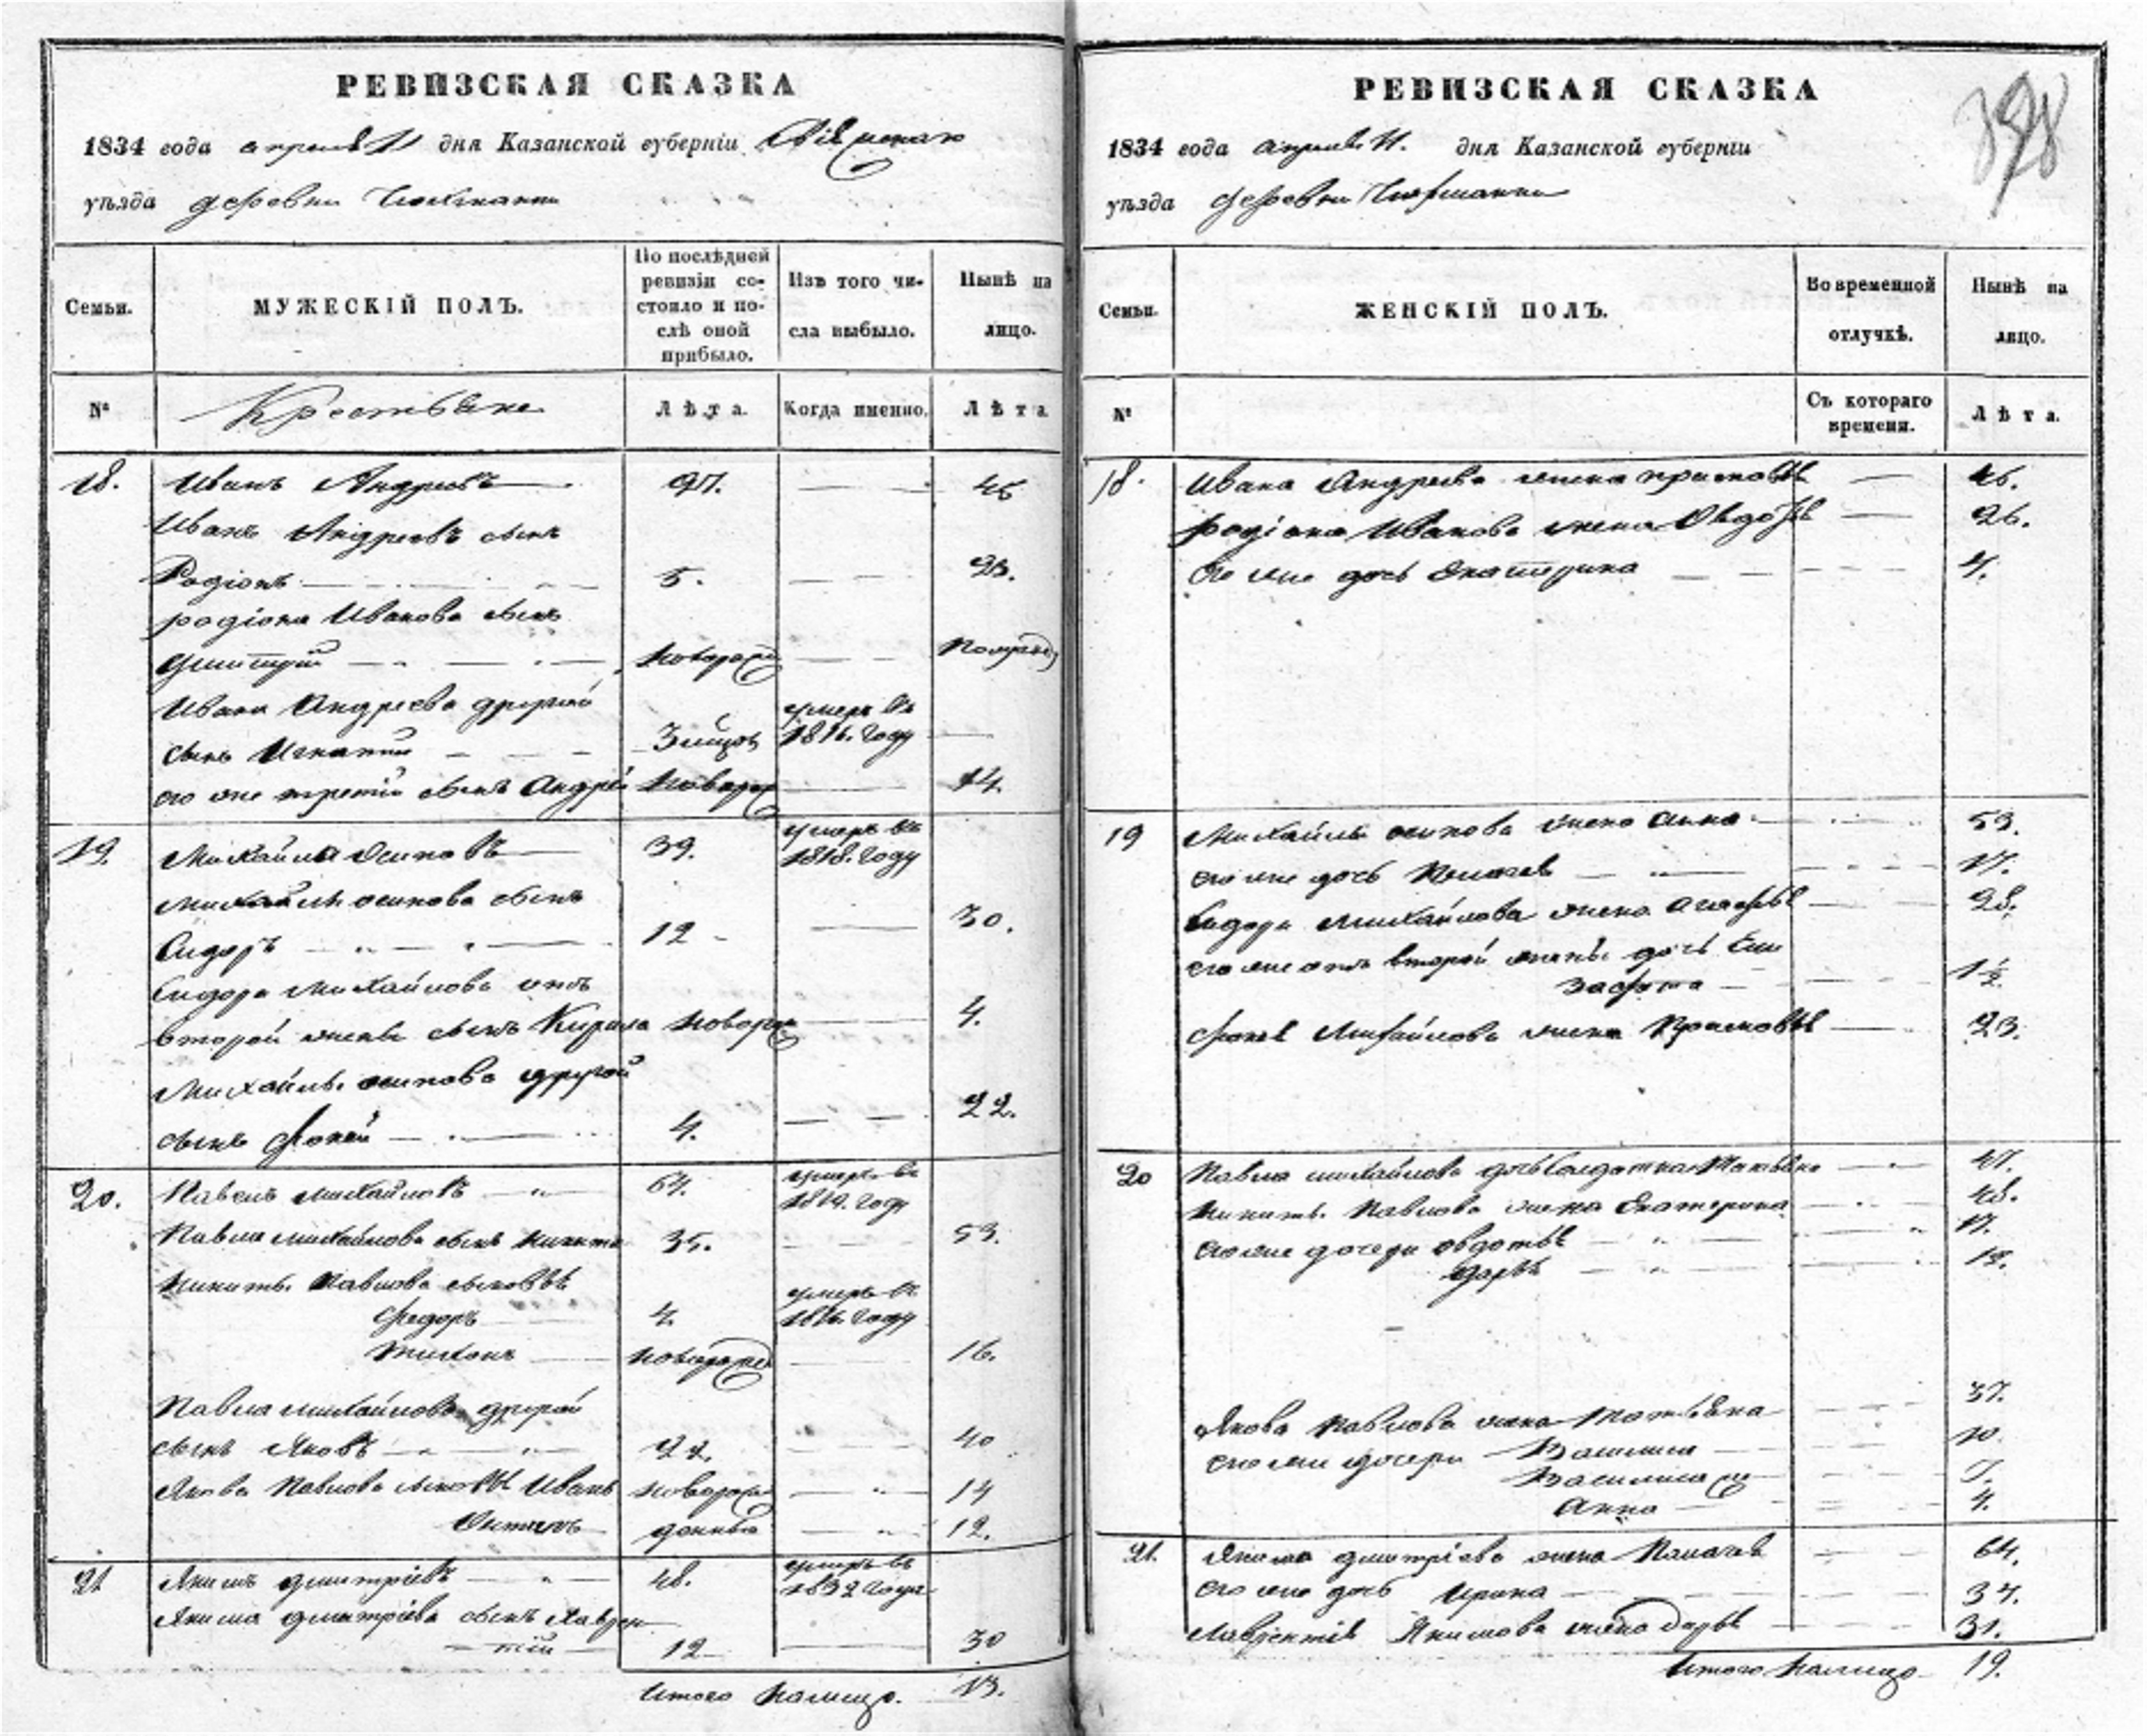 РЕВИЗСКАЯ СКАЗКА
1834 года апреля 11 дня Казанской губернiи
уѣзда деревни
Семьи.
МУЖЕСКIЙ ПОЛЪ.
По послѣдней
ревизiи со-
стояло и по-
слѣ оной
прибыло.
Изъ того чи-
сла выбыло.
Нынѣ на
лицо.
№
Крестьяне
Лѣта.
Когда именно.
Лѣта
18. Иванъ Андреевъ 45
Иванъ Андреевъ сынъ
Родiонъ 5.
родiона Иванова сынъ
Дмитрiй новорож
Ивана Андреева другой умеръ въ
сынъ Игнатiй 1816. году
его же третiй сынъ Андрей новорож 14.
19. Михайла Осиповъ 39. умеръ въ 1818. году
Михайлы осипова сынъ
Сидоръ 12 30.
Сидора Михайлова отъ
второй жены сынъ Кирила новорож 4.
Михайлы осипова другой
сынъ Фокей 4. 22.
20. Павелъ михайловъ 64. умеръ въ
году
Павла михайлова сынъ никита 35. 53.
Никиты Павлова сыновьѣ
Федоръ 4. умеръ въ
1816. году
Тихонъ новорожд 16.
Павла михайлова другой
сынъ Яковъ 40
Якова Павлова сыновьѣ Иванъ новорож 14
денные 12.
21 Якимъ дмитрiевъ 48. умеръ въ
1832 году
Якима дмитрiева сынъ Лаврен
тiй 12 30
Итого налицо. 13.
РЕВИЗСКАЯ СКАЗКА
1834 года апреля 11. дня Казанской губернiи
уѣзда деревни
Семьи.
ЖЕНСКIЙ ПОЛЪ.
Во временной
отлучкѣ.
Нынѣ на
лицо.
№
Съ котораго
времени.
Лѣта.
18. Ивана Андреева жена прасковьѣ 46.
родiона Иванова жена Овдотьѣ 26.
его же дочь Екатерина 4.
19 Михайлы осипова жена Анна 53.
его же дочь Пелагея 17.
Сидора Михайлова жена Агафьѣ 28.
его же отъ второй жены дочь Ели
завета 1 1/2
Фокея Михайлова жена Прасковьѣ 23.
20 Павла михайлова дочь Солдатка Татьяна 47.
Никиты Павлова жена Екатерина 48.
его же дочери овдотьѣ 17.
дарьѣ 12.
Якова Павлова жена Татьяна 37.
его же дочери Василиса 10.
Василиса же 7.
Анна 4.
21. Якима дмитрiева жена Палагея 64.
его же дочь Ирина 34.
Лаврентiя Якимова жена дарьѣ 31.
Итого налицо 19.